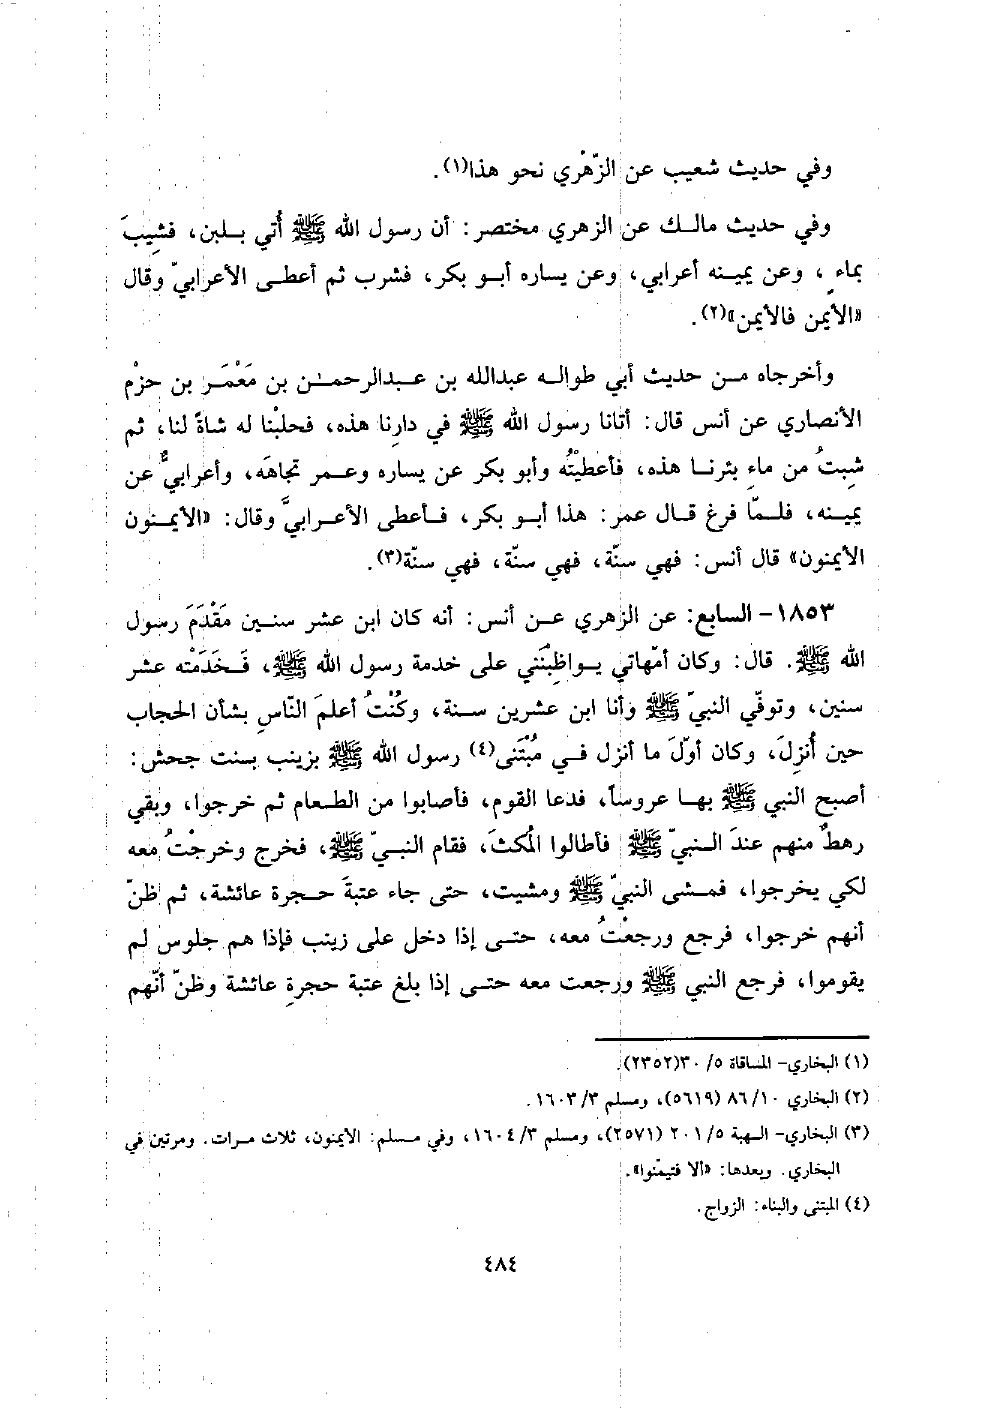 وفي حديث شعيب عن الزّهْري نحو هذا(١).
وفي حديث مالـك عن الزهري مختصر: أن رسول الله ﷺ أُتي بـلبن، فشِيبَ
بماءٍ، وعن يمينه أعرابي، وعن يساره أبـو بكر، فشرب ثم أعطـى الأعرابيّ وقال
«الأيمن فالأيمن»(٢).
وأخرجاه مـن حديث أبي طوالـه عبدالله بن عبدالرحمـٰن بن مَعْمَـر بن حزْم
الأنصاري عن أنس قال: أتانا رسول الله ﷺ في دارِنا هذه، فحلبْنا له شاةً لنا، ثم
شِبتُ من ماءِ بئرنـا هذه، فأعطيْتُه وأبو بكر عن يساره وعـمر تجاهَه، وأعرابيٌّ عن
يمينـه، فلـمّا فرغ قـال عمر: هذا أبـو بكر، فـأعطى الأعـرابيَّ وقال: «الأيمـنون
الأيمنون» قال أنس: فهي سنّة، فهي سنّة، فهي سنّة(٣).
١٨٥٣- السابع: عن الزهري عـن أنس: أنه كان ابن عشر سنـين مَقْدَمَ رسول
الله ﷺ. قال: وكان أمّهاتي يـواظِبْنَني على خدمة رسول الله ﷺ، فَـخَدَمْته عشر
سنين، وتوفّي النبيّ ﷺ وأنا ابن عشرين سـنة، وكُنْتُ أعلمَ النّاسِ بشأن الحجاب
حين أُنزِلَ، وكان أوّلَ ما أنزل فـي مُبْتَنى(٤) رسول الله ﷺ بزينب بـنت جحش:
أصبح النبي ﷺ بهـا عروساً، فدعا القوم، فأصابوا من الطـعام ثم خرجوا، وبقي
رهطٌ منهم عندَ الـنبيّ ﷺ فأطالوا المُكثَ، فقام النبـيّ ﷺ، فخرج وخرجْتُ معه
لكي يخرجوا، فمـشى النبيّ ﷺ ومشيت، حتى جاء عتبةَ حـجرة عائشة، ثم ظنّ
أنهم خرجوا، فرجع ورجعْتُ معه، حتـى إذا دخل على زينب فإذا هم جلوس لم
يقوموا، فرجع النبي ﷺ ورجعت معه حتـى إذا بلغ عتبة حجرةِ عائشة وظنّ أنّهم
(١) البخاري- المساقاة ٥/ ٣٠(٢٣٥٢).
(٢) البخاري ١٠/ ٨٦ (٥٦١٩)، ومسلم ٣/ ١٦٠٣.
(٣) البخاري- الـهبة ٥/ ٢٠١ (٢٥٧١)، ومسلم ٣/ ١٦٠٤، وفي مسلم: الأيمنون، ثلاث مـرات. ومرتين في
البخاري. وبعدها: «ألا فتيمّنوا».
(٤) المبتنى والبناء: الزواج.
٤٨٤